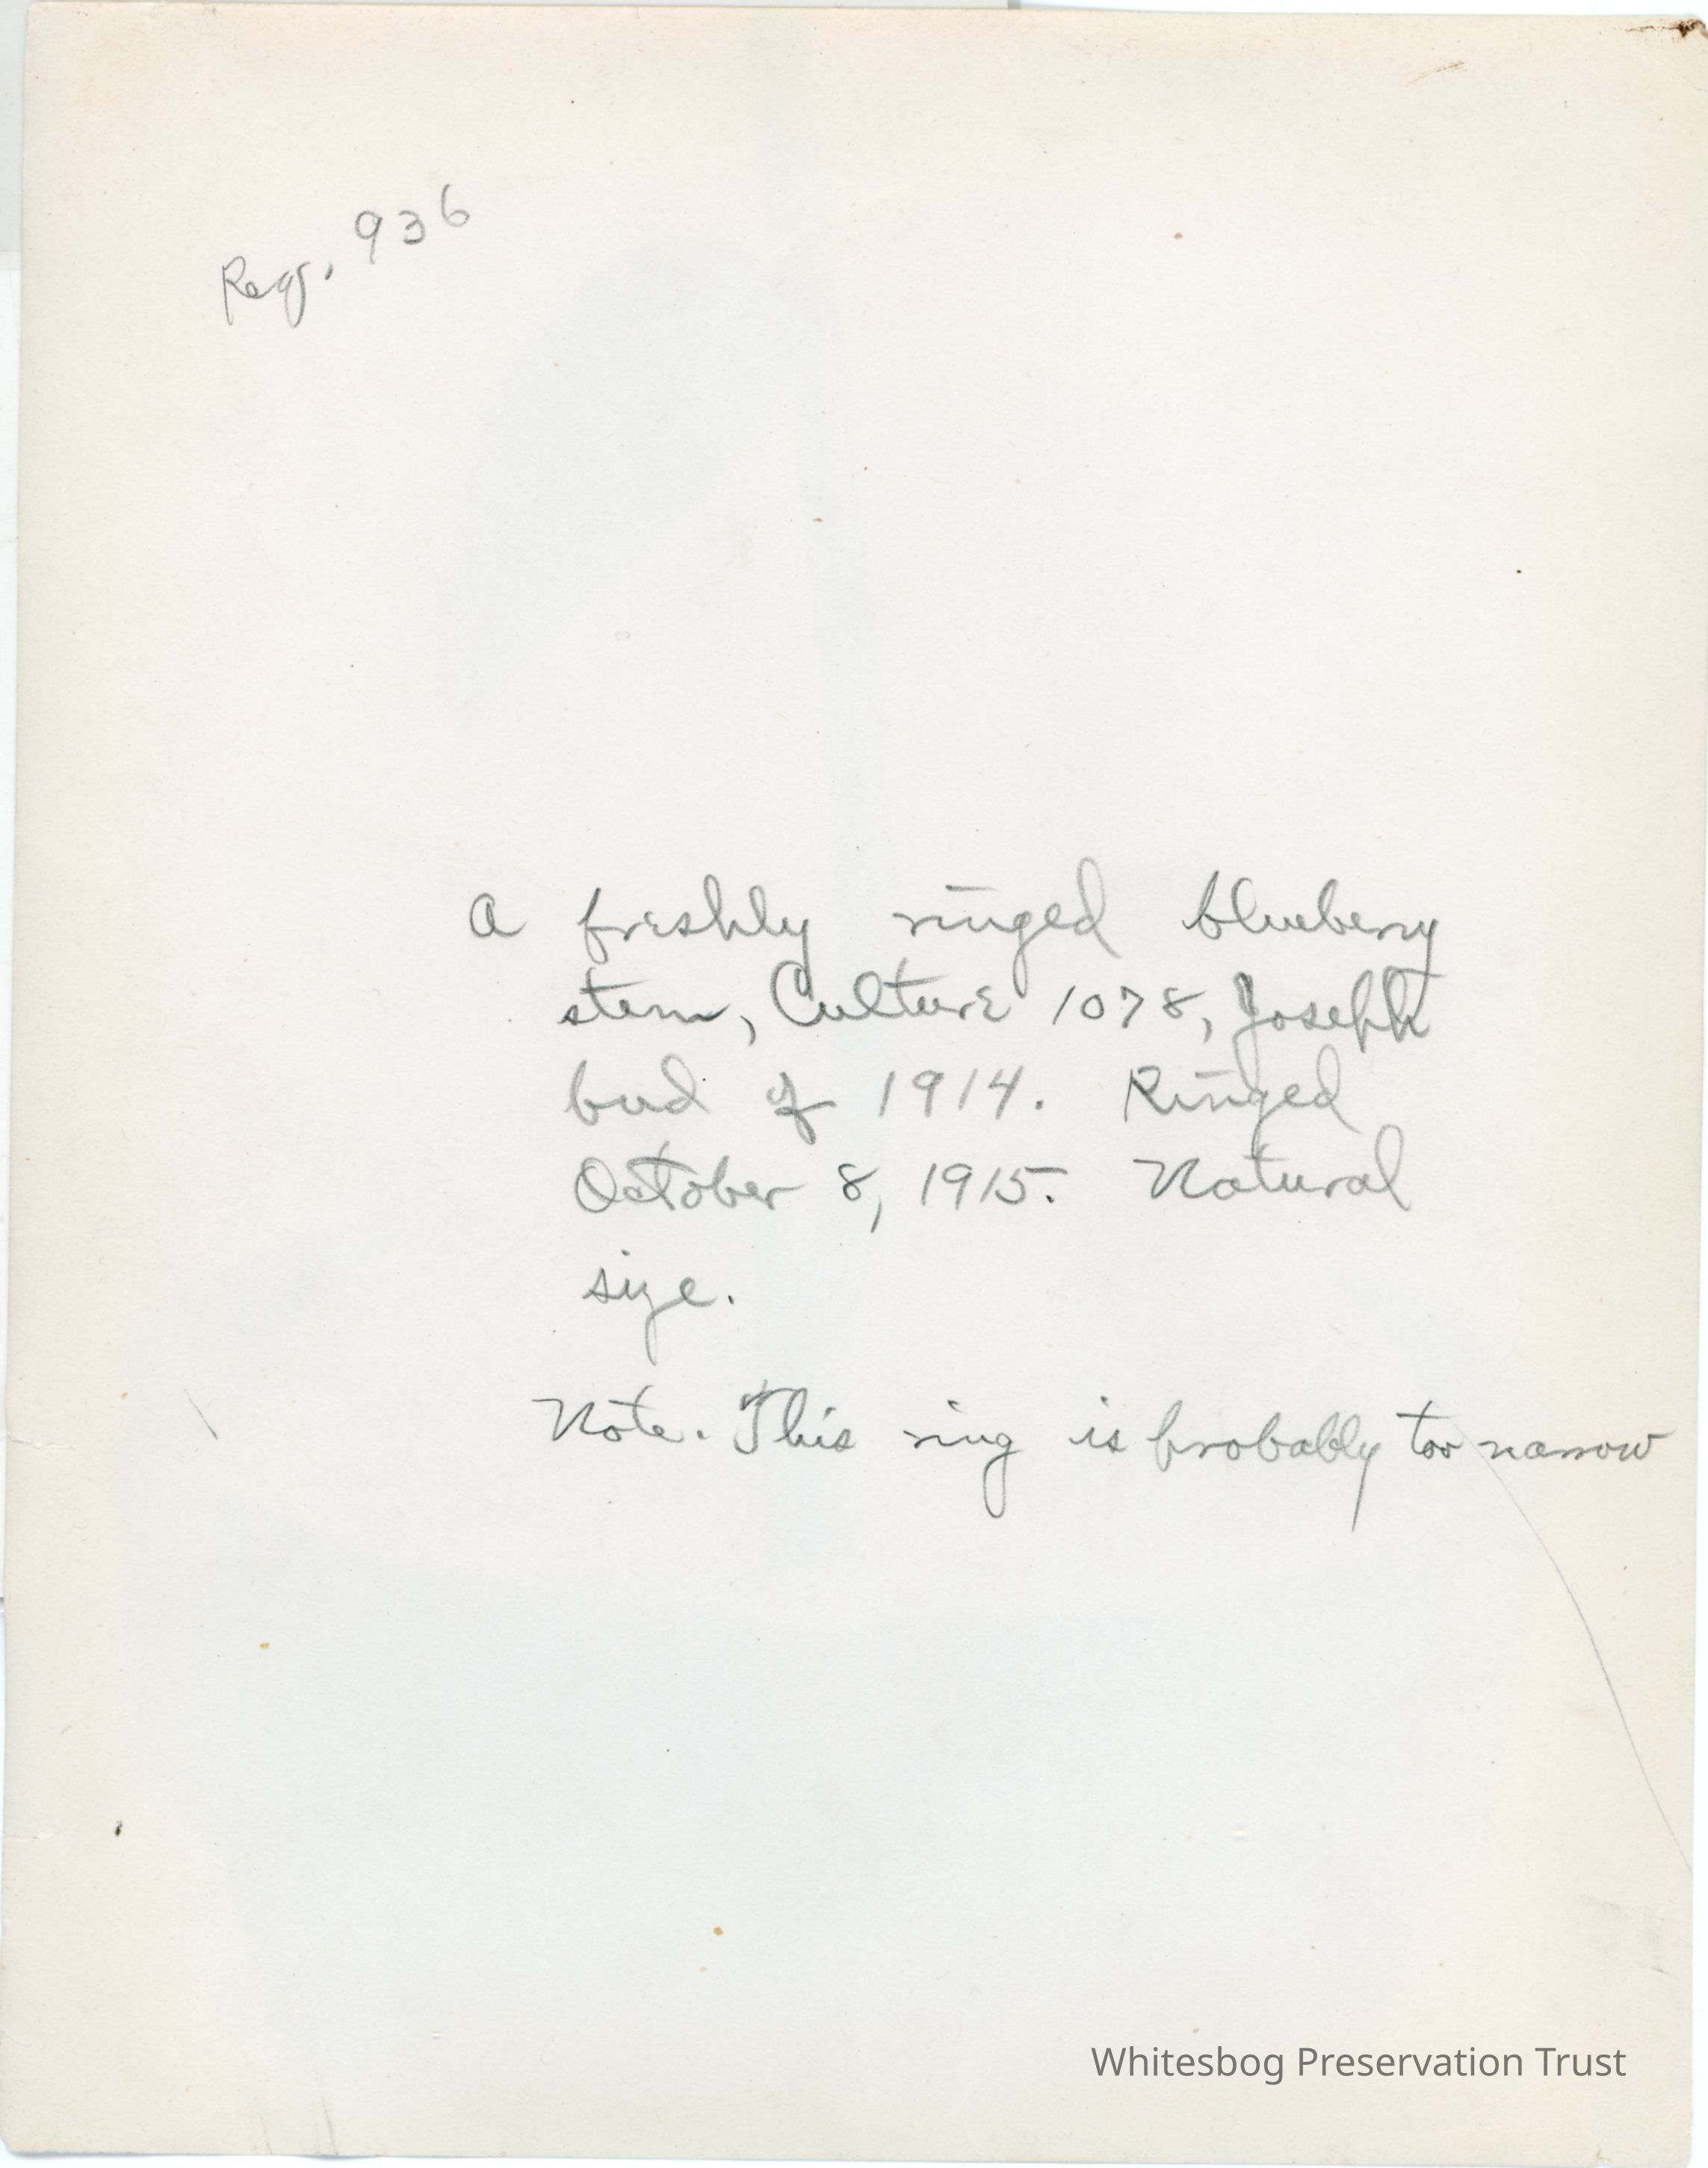 Reg. 936
A freshly ringed blueberry
stem, Culture 1078, Joseph
bud of 1914. Ringed
October 8, 1915. Natural
size.
Note. This ring is probably too narrow
Whitesbog Preservation Trust